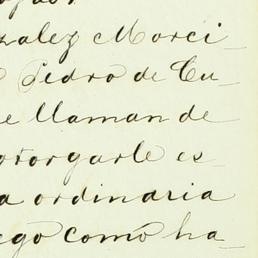 zalez Morci_
Pedro de Cu_
e llaman de
otorgarle es_
a ordinaria
ego como ha_